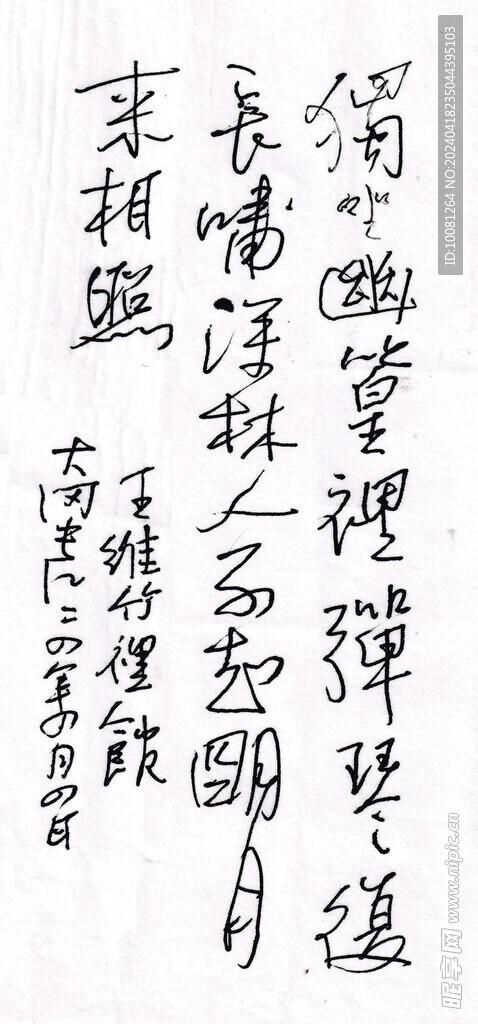 獨坐幽篁裡彈琴復
長嘯深林人不知明月
来相照
王維竹裡館
二四年四月四日
ID:10081264 NO:20240418235044395103
昵享网 www.nipic.cn